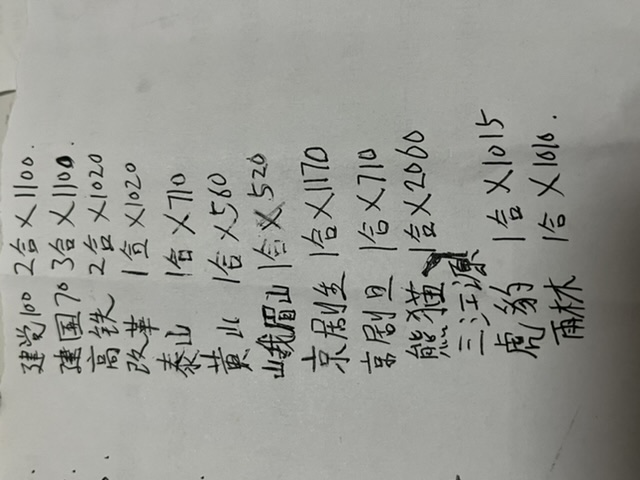 建党100 2合×1100.
建国70 3合×1100.
高铁 2合×1020
改革 1合×1020
泰山 1合×710
黄山 1合×560
峨眉山 1合×520
京剧生 1合×1170
京剧旦 1合×710
熊猫 1合×2060
三江源
虎豹 1合×1015
雨林 1合×1010.